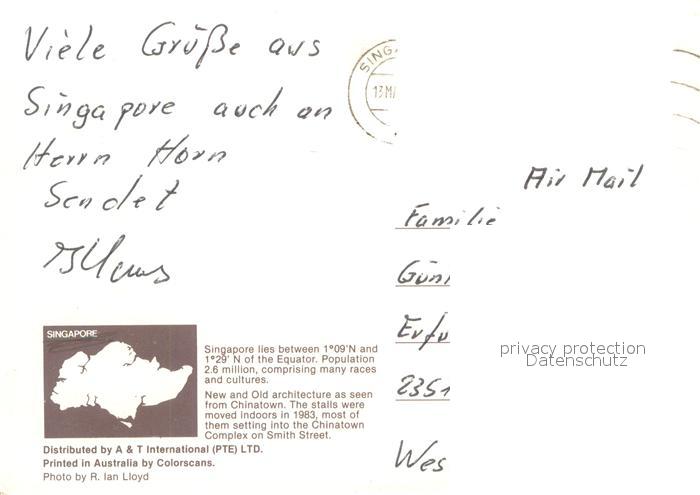 Viele Grüße aus
Singapore auch an
Herrn Horn
Sendet
SING
13 M
Air Mail
Familie
Gün
Erfu
2351
Wes
privacy protection
Datenschutz
SINGAPORE
Singapore lies between 1°09'N and
1°29' N of the Equator. Population
2.6 million, comprising many races
and cultures.
New and Old architecture as seen
from Chinatown. The stalls were
moved indoors in 1983, most of
them setting into the Chinatown
Complex on Smith Street.
Distributed by A & T International (PTE) LTD.
Printed in Australia by Colorscans.
Photo by R. Ian Lloyd